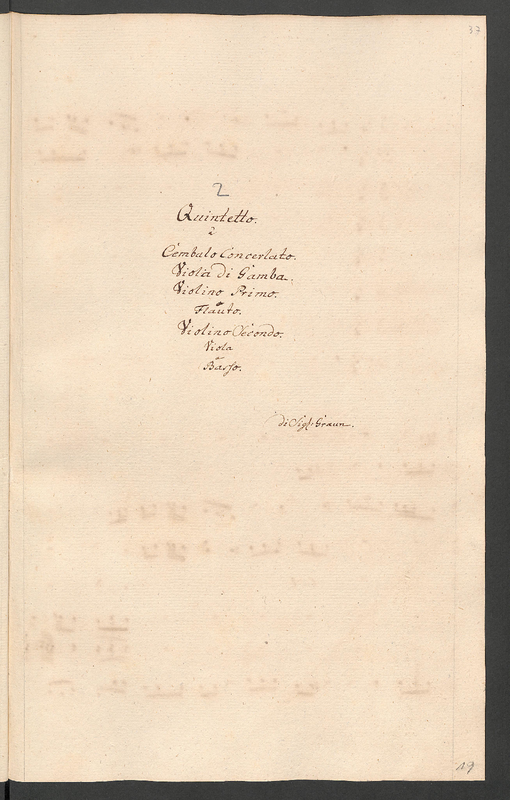 37
2
Quintetto.
à
Cembalo Concertato.
Viola di Gamba.
Violino Primo.
ò
Flauto.
Violino Secondo.
Viola
è
Basso.
di Sigl: Graun.
19